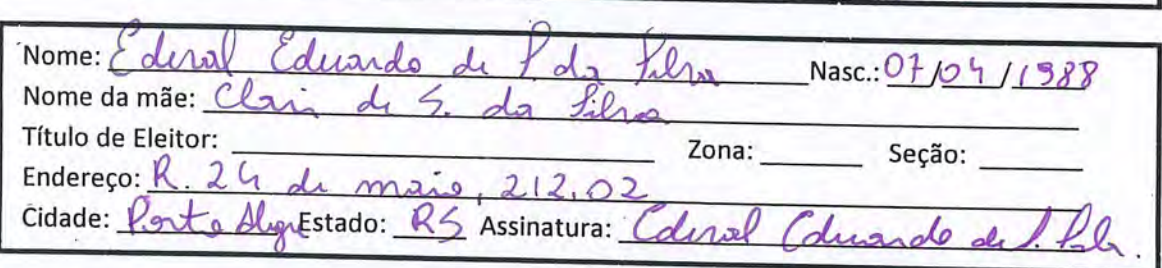 Nome: Ederal Eduardo de S. da Silva Nasc.: 07/04/1988
Nome da mãe: Clair de S. da Silva
Título de Eleitor: Zona: Seção:
Endereço: R. 24 de maio, 212.02
Cidade: Porto Alegre Estado: RS Assinatura: Ederal Eduardo de S.